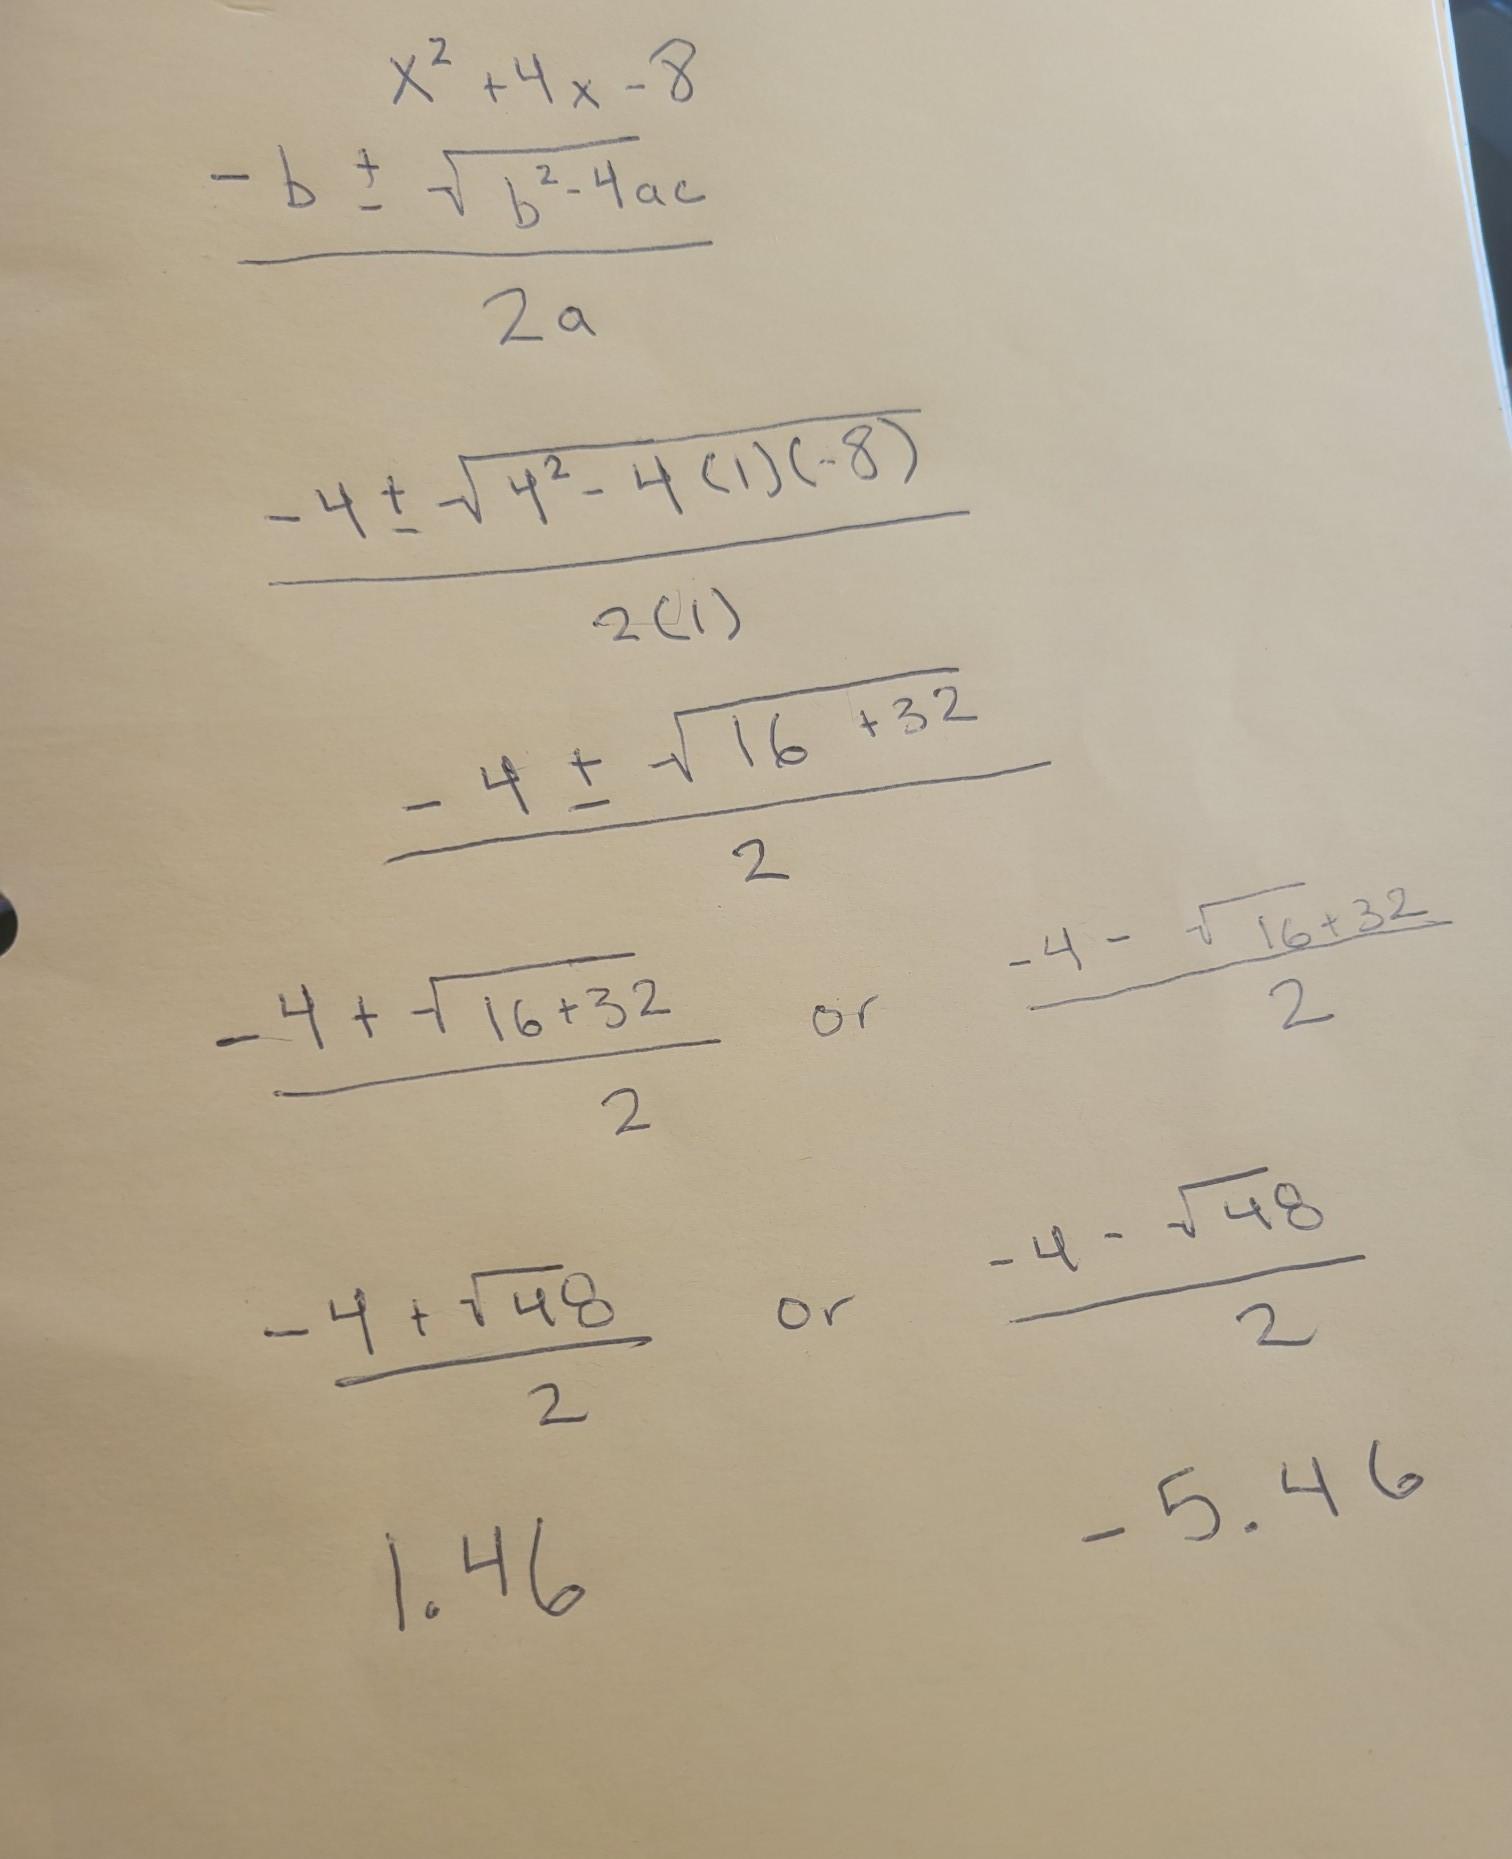 x² + 4x - 8
-b ± √b² - 4ac
2a
-4 ± √4² - 4(1)(-8)
2(1)
-4 ± √16 + 32
2
-4 + √16 + 32 or -4 - √16 + 32
2 2
-4 + √48 or -4 - √48
2 2
1.46 -5.46